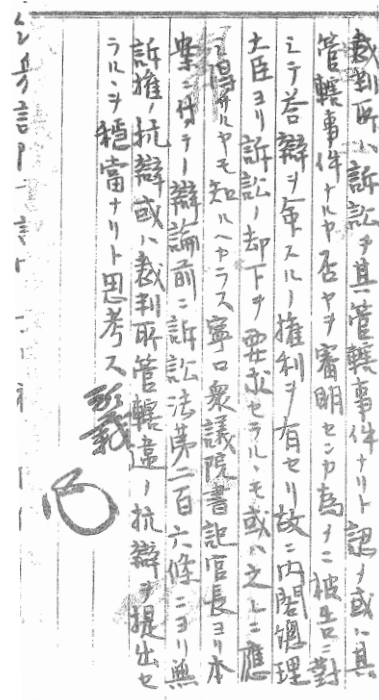 裁判所ハ訴訟ヲ其管轄事件ナリト認メ或ハ其
管轄事件ナルヤ否ヤヲ審明センカ為メニ被告ニ対
シテ答辯ヲ命スルノ権利ヲ有セリ故ニ内閣総理
大臣ヨリ訴訟ノ却下ヲ要求セラルヽモ或ハ之レニ應
シ得サルヤモ知ルヘカラス寧ロ衆議院書記官長ヨリ本
案ニ付テノ辯論前ニ訴訟法第二百六條ニヨリ無
訴権ノ抗辯或ハ裁判所管轄違ノ抗辯ヲ提出セ
ラルヲ穏當ナリト思考ス